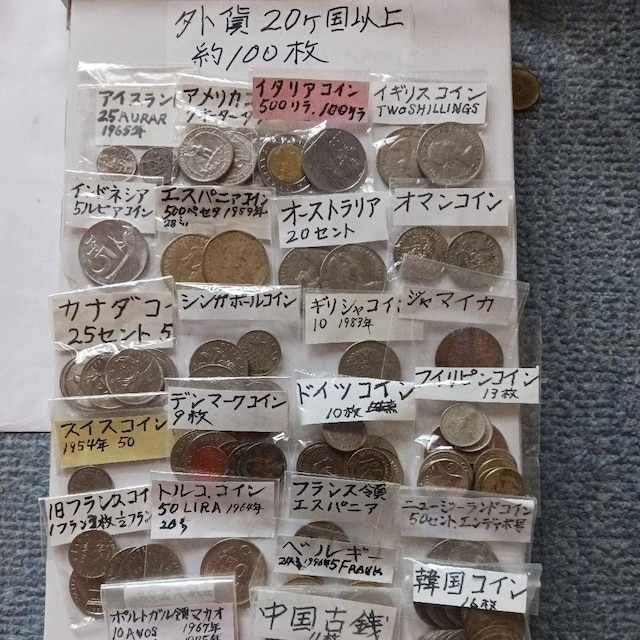 外貨20ヶ国以上
約100枚
アイスラン
25 AURAR
1965年
アメリカコ
イタリアコイン
500リラ、100リラ
イギリスコイン
TWO SHILLINGS
インドネシア
5ルピアコイン
エスパニアコイン
500ペセタ 1989年
オーストラリア
20セント
オマンコイン
カナダコー
25セント 5
シンガポールコイン
ギリシャコイン
10 1983年
ジャマイカ
スイスコイン
1954年 50
デンマークコイン
9枚
ドイツコイン
10枚
フィリピンコイン
13枚
旧フランスコイ
トルココイン
50 LIRA 1964年
フランス領
エスパニア
ニュージーランドコイン
50セントエンデボ号
ベルギー
5 FRANK
韓国コイン
16枚
ポルトガル領マカオ
10 AVOS 1967年
中国古銭